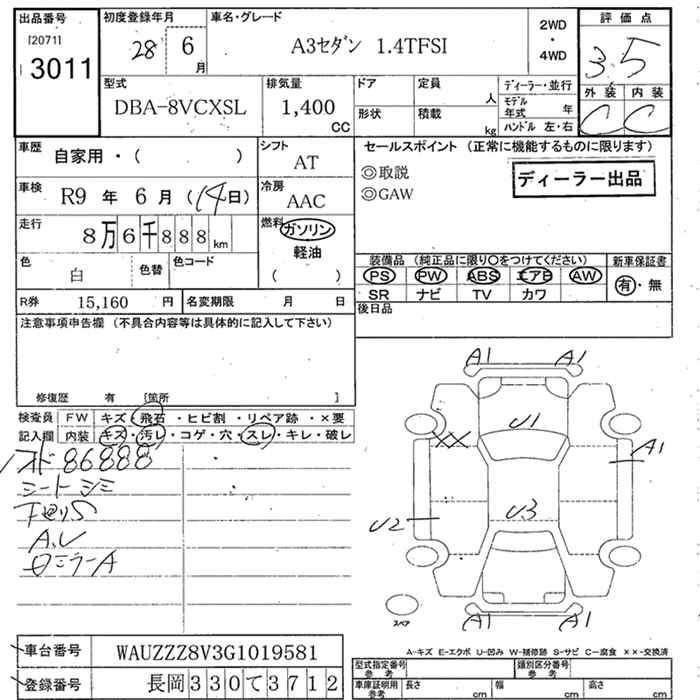 出品番号 初度登録年月 車名・グレード 2WD ・ 4WD 評価点
[2071] 3011
28年 6月 A3セダン 1.4TFSI 3.5
型式 DBA-8VCXSL 排気量 1,400 CC
ドア 定員 人 ディーラー・並行
形状 積載 kg モデル年式 年
ハンドル 左・右
外装 内装
C C
車歴 自家用・( ) シフト AT
セールスポイント (正常に機能するものに限ります)
◎取説
◎GAW
ディーラー出品
車検 R9 年 6 月 (14日) 冷房 AAC
走行 8万6千888 km 燃料 ガソリン
軽油
( )
色 白 色替 色コード
装備品 (純正品に限り○をつけてください) 新車保証書
PS PW ABS エアB AW 有・無
SR ナビ TV カワ
R券 15,160 円 名変期限 月 日
後日品
注意事項申告欄 (不具合内容等は具体的に記入して下さい)
修復歴 有 [箇所 ]
検査員 FW キズ・飛石・ヒビ割・リペア跡・×要
記入欄 内装 キズ・汚レ・コゲ・穴・スレ・キレ・破レ
86888
シートシミ
下廻りS
A.U
ロミラーA
A1 A1
U1
XX A1
U2 U3
A1 A1
スペア
A-キズ E-エクボ U-凹み W-補修跡 S-サビ C-腐食 ××-交換済
車台番号 WAUZZZ8V3G1019581
登録番号 長岡330て3712
型式指定番号 参考 類別区分番号 参考
車庫証明用 参考 長さ cm 幅 cm 高さ cm